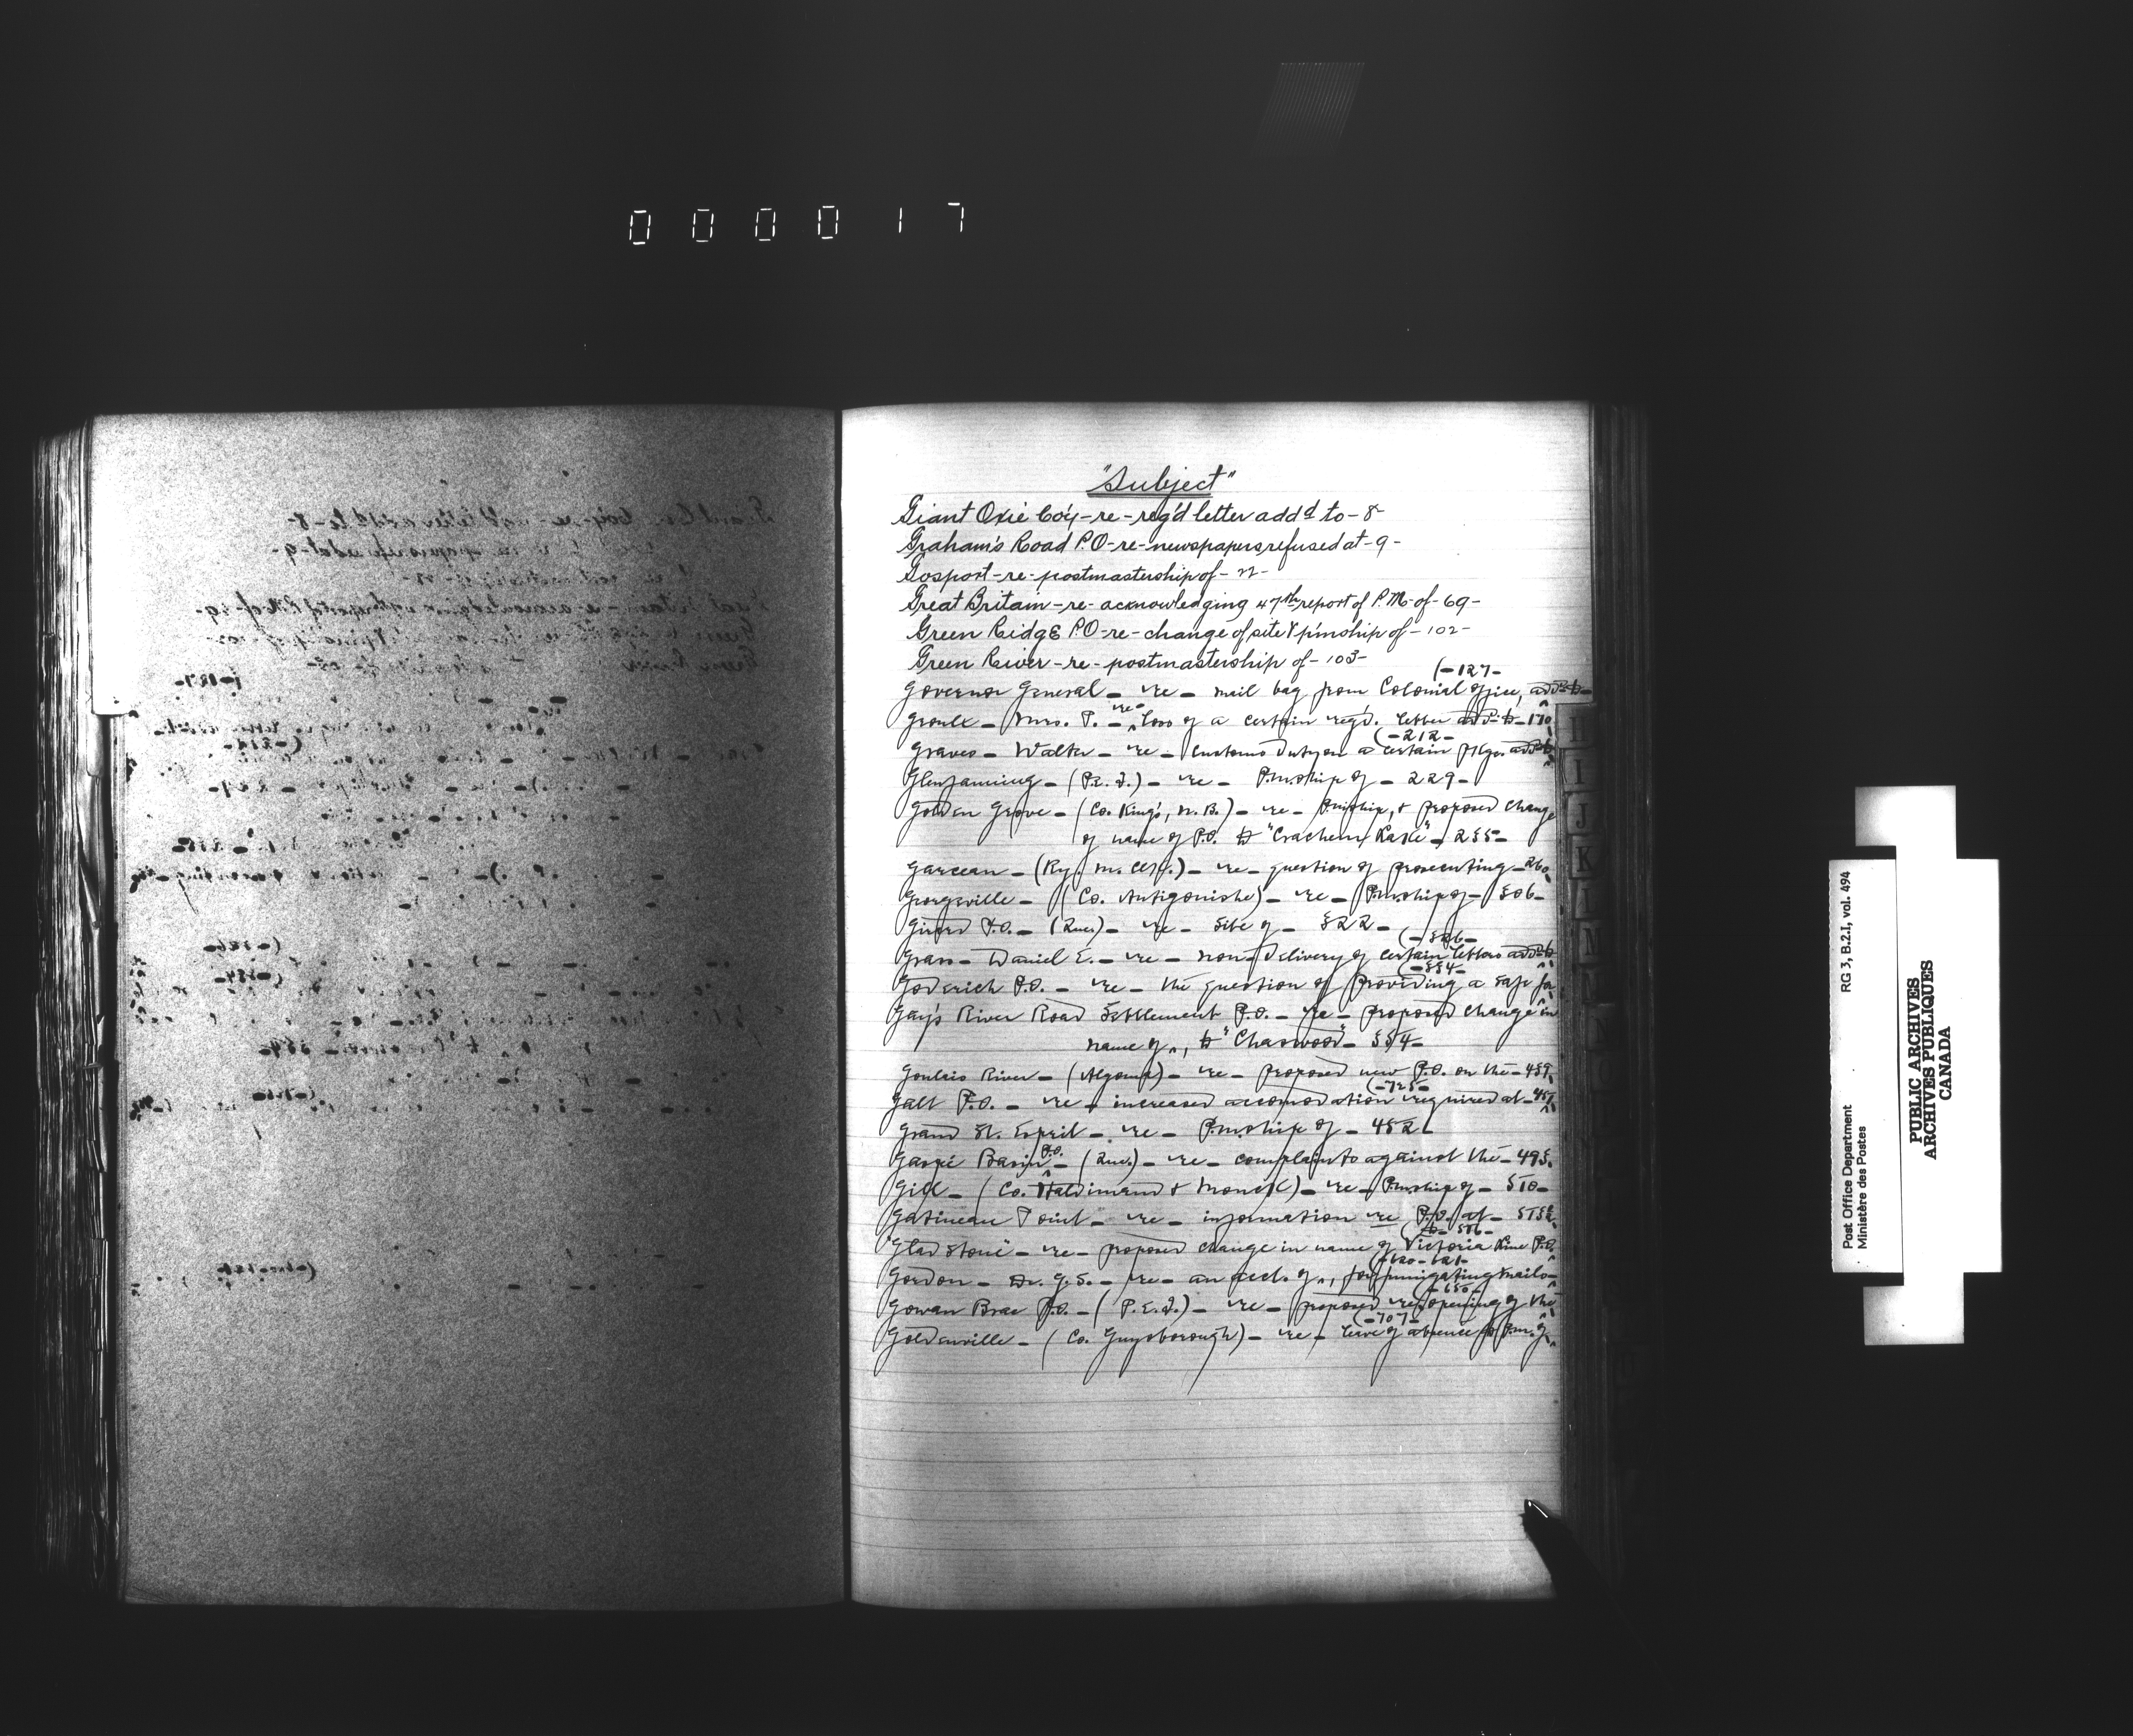 000017
"Subject"
Giant Oxie Co'y-re-reg'd letter add'd to-8-
Graham's Road P.O-re-newspapers refused at-9-
Gosport-re-postmastership of-22-
Great Britain-re-acknowledging 47th report of P.M.-of-69-
Green Ridge P.O-re-change of site & p'mship of-102-
Green River-re-postmastership of-103-
(-127-
Governor General - re - mail bag from Colonial Office, add'd to-
Groulx - Mrs. P. - re - loss of a certain reg'd. letter add'd to-170
(-212-
Graves - Walter - re - Customs duty on a certain pkge. add'd to
Glenfanning - (P.E.I.) - re - P.m.ship of - 229-
Golden Grove - (Co. King's, N.B.) - re - P.mship, & proposed change
of name of P.O. to - 255-
Garceau - (Ry. M. Clk.) - re - question of prosecuting-260
Georgeville - (Co. Antigonishe) - re - P.m.ship of - 306-
Girard P.O. - (Que.) - re - site of - 322-
(-326-
Grass - Daniel E. - re - non-delivery of certain letters add'd to
(-334-
Goderich P.O. - re - the question of providing a safe for
Gay's River Road Settlement P.O. - re - proposed change in
name of „, to "Chaswood" - 354-
Goulais River - (Algoma) - re - proposed new P.O. on the - 439
(-725-
Galt P.O. - re - increased accomodation required at - 451
Grand St. Esprit - re - P.m.ship of - 452
Gaspé Basin P.O. - (Que.) - re - complaints against the - 495
Gill - (Co. Haldimand & Monck) - re - P.m.ship of - 510-
Gatineau Point - re - information re P.O. at -
"Gladstone" - re - proposed change in name of Victoria P.O.
(-620-621-
Gordon - Dr. G.S. - re - an acct. of „, for fumigating mails-
(-650-
Gowan Brae P.O. - (P.E.I.) - re - proposed re-opening of the
(-707-
Goldenville - (Co. Guysborough) - re - leave of absence to P.m. of
H
I
J
K
L
M
N
Post Office Department
Ministère des Postes
RG 3, B.2.I, vol. 494
PUBLIC ARCHIVES
ARCHIVES PUBLIQUES
CANADA